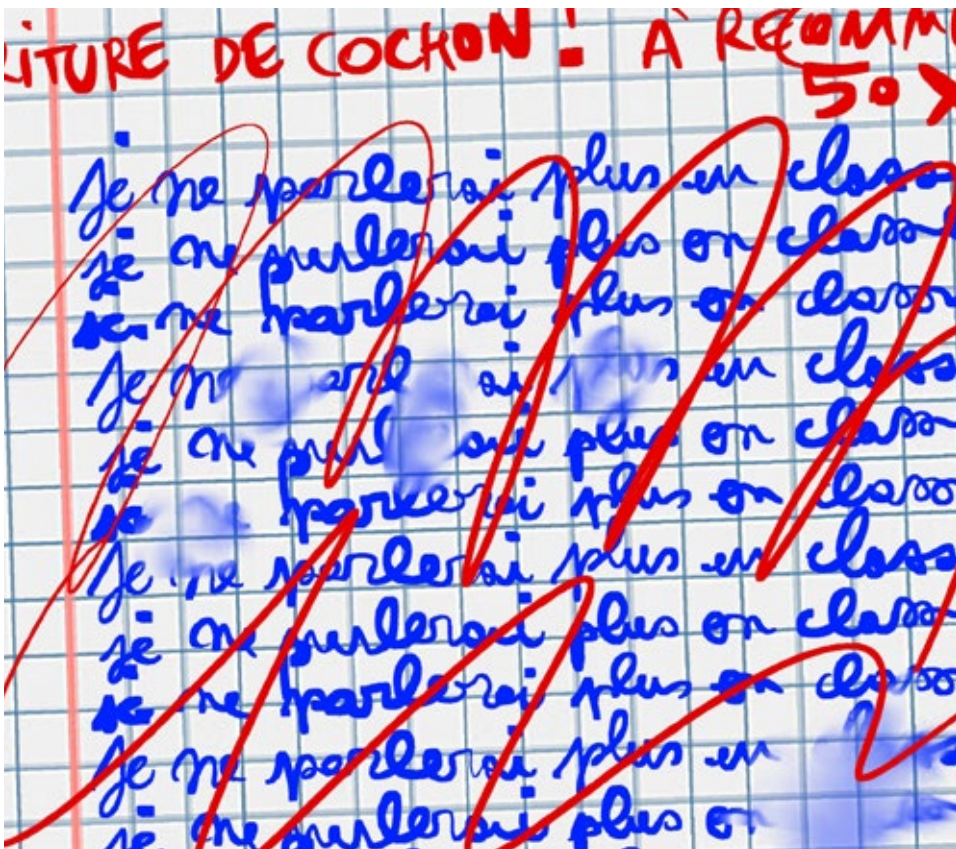 RITURE DE COCHON! À RECOMM
50 X
je ne parlerai plus en classe
je ne parlerai plus en classe
je ne parlerai plus en classe
je ne parl ai plus en classe
je ne parl ai plus en classe
je parlerai plus en classe
je ne parlerai plus en classe
je ne parlerai plus en classe
je ne parlerai plus en classe
je ne parlerai plus en
je ne parlerai plus en